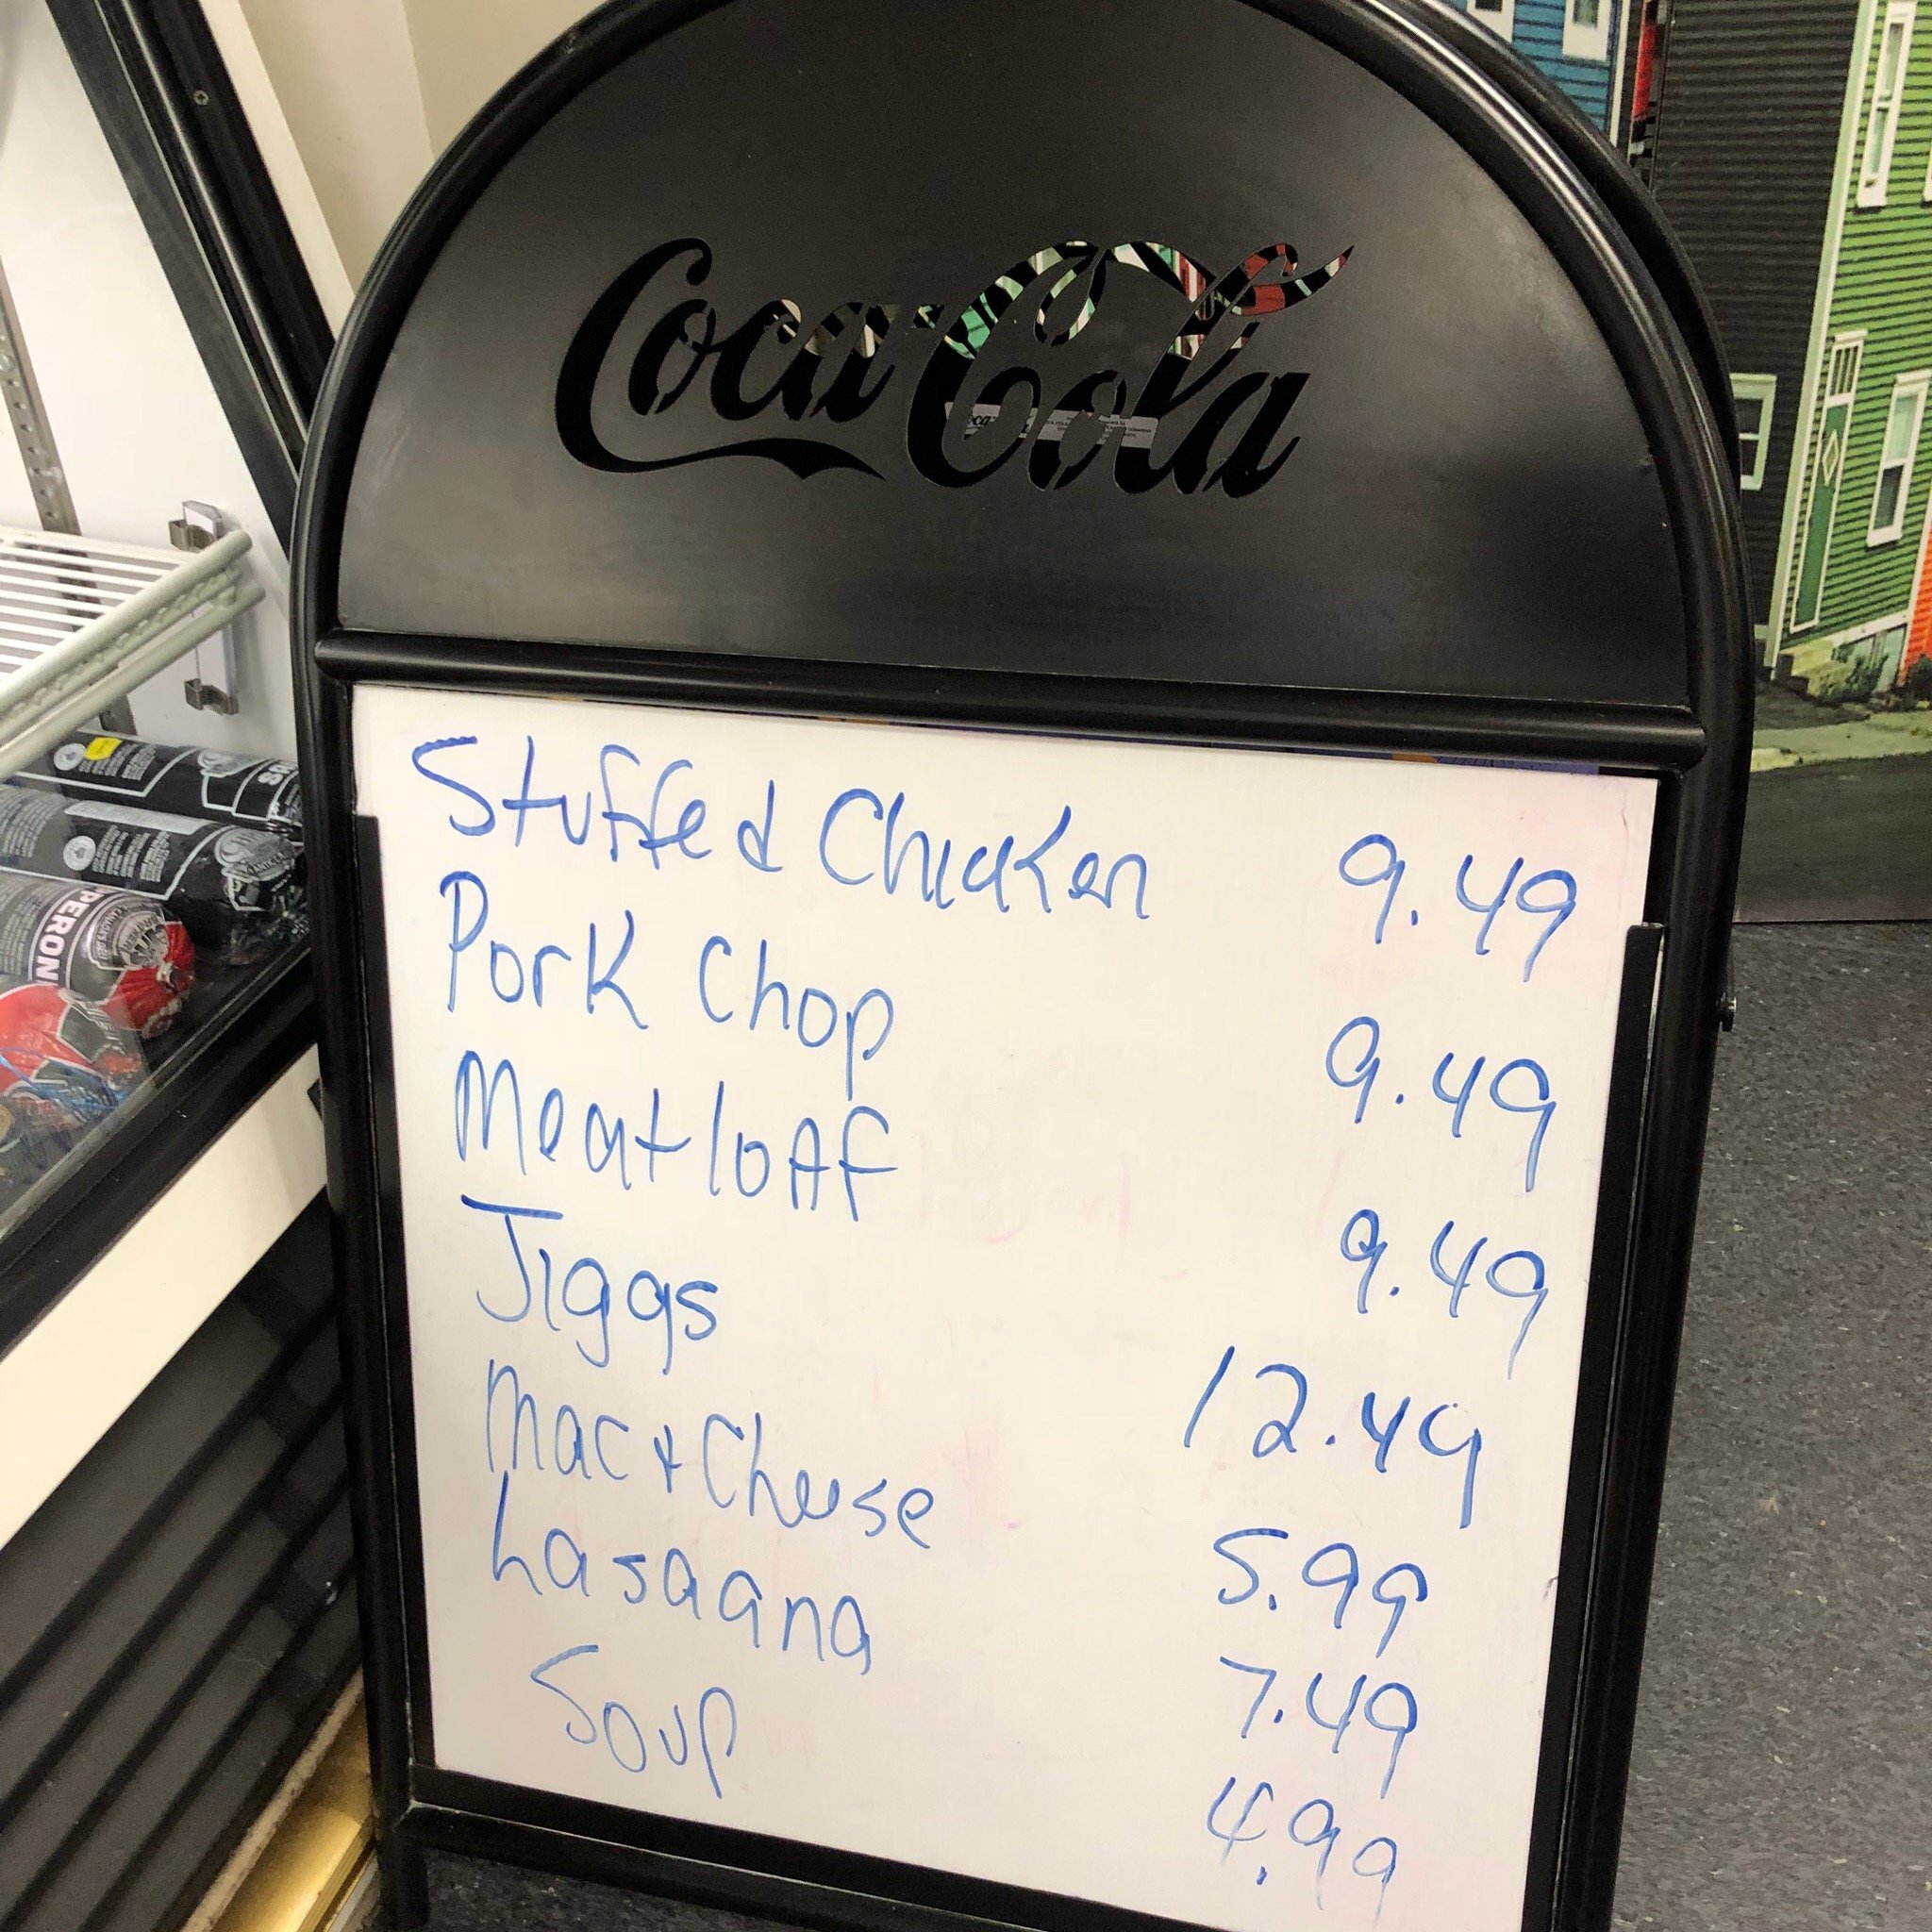 Coca-Cola
Stuffed Chicken 9.49
Pork Chop 9.49
Meatloaf 9.49
Jiggs 12.49
Mac + Cheese 5.99
Lasagna 7.49
Soup 4.99
PERON